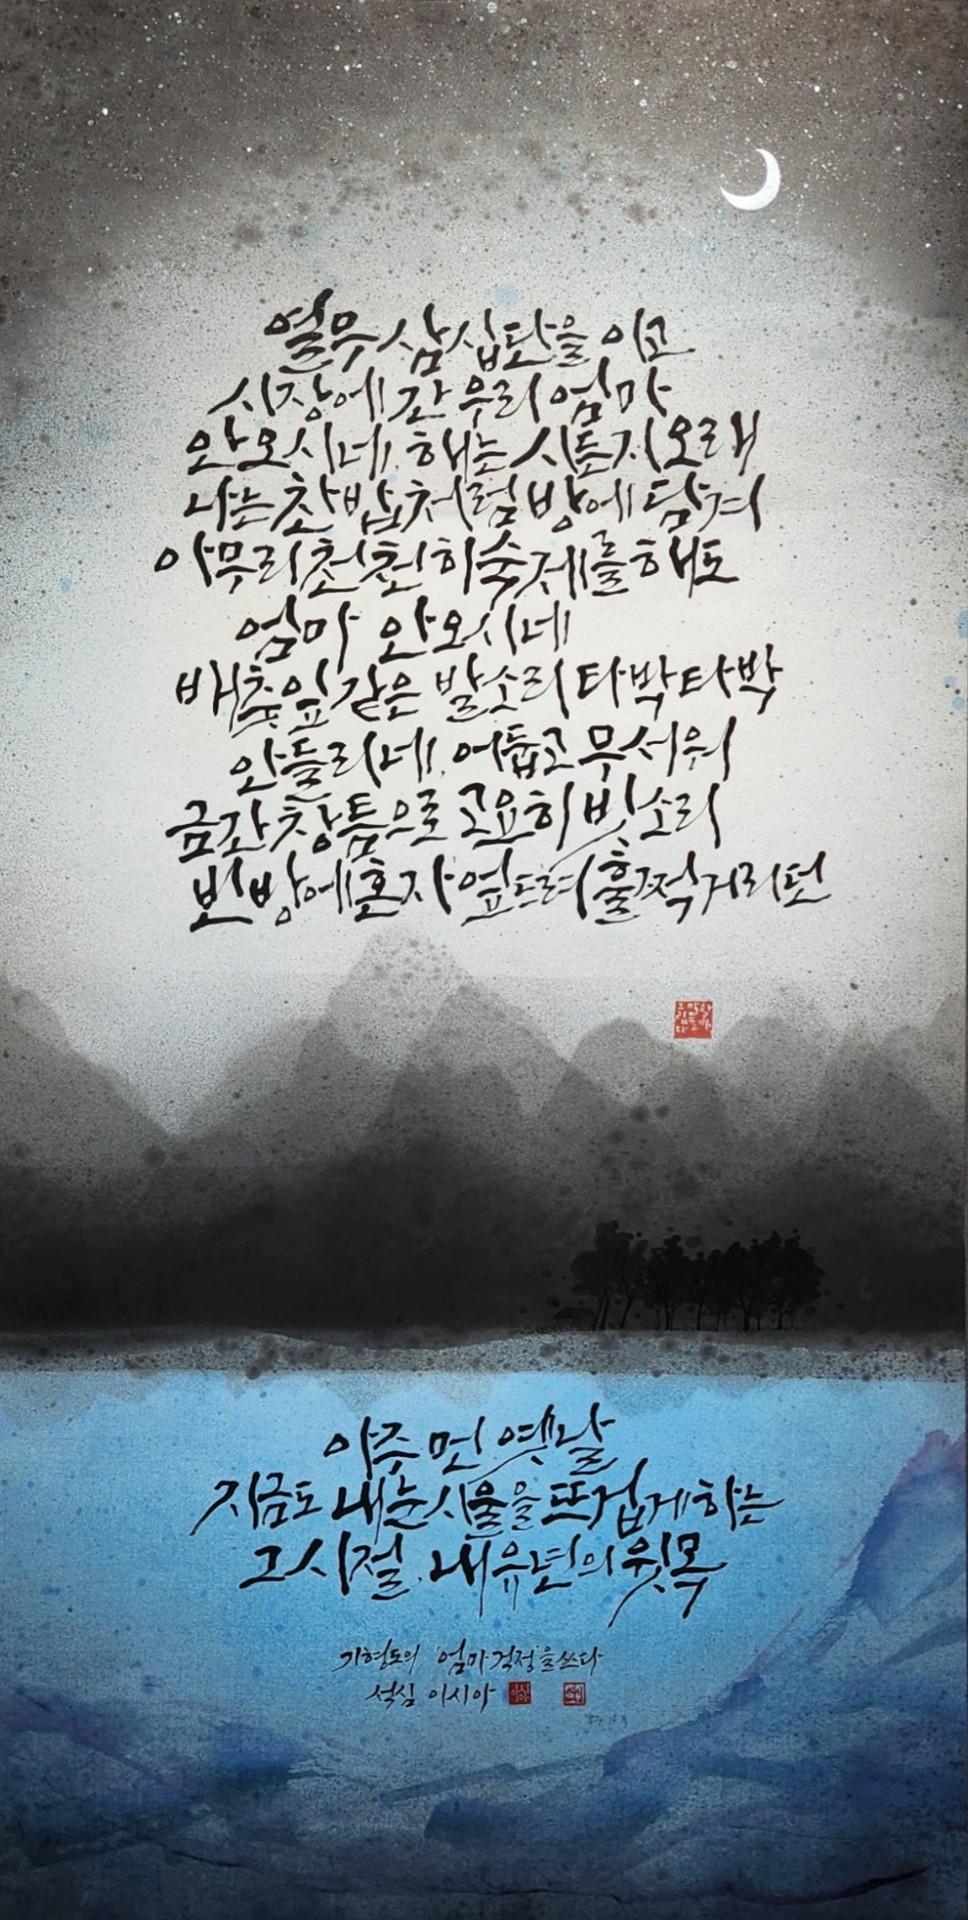 열무 삼십단을 이고
시장에 간 우리 엄마
안오시네, 해는 시든지 오래
나는 찬밥처럼 방에 담겨
아무리 천천히 숙제를 해도
엄마 안오시네
배춧잎 같은 발소리 타박타박
안들리네, 어둡고 무서워
금간 창틈으로 고요히 빗소리
빈방에 혼자 엎드려 훌쩍거리던
아주 먼 옛날
지금도 내 눈시울을 뜨겁게 하는
그 시절, 내 유년의 윗목
기형도의 '엄마걱정'을 쓰다
석심 이시아